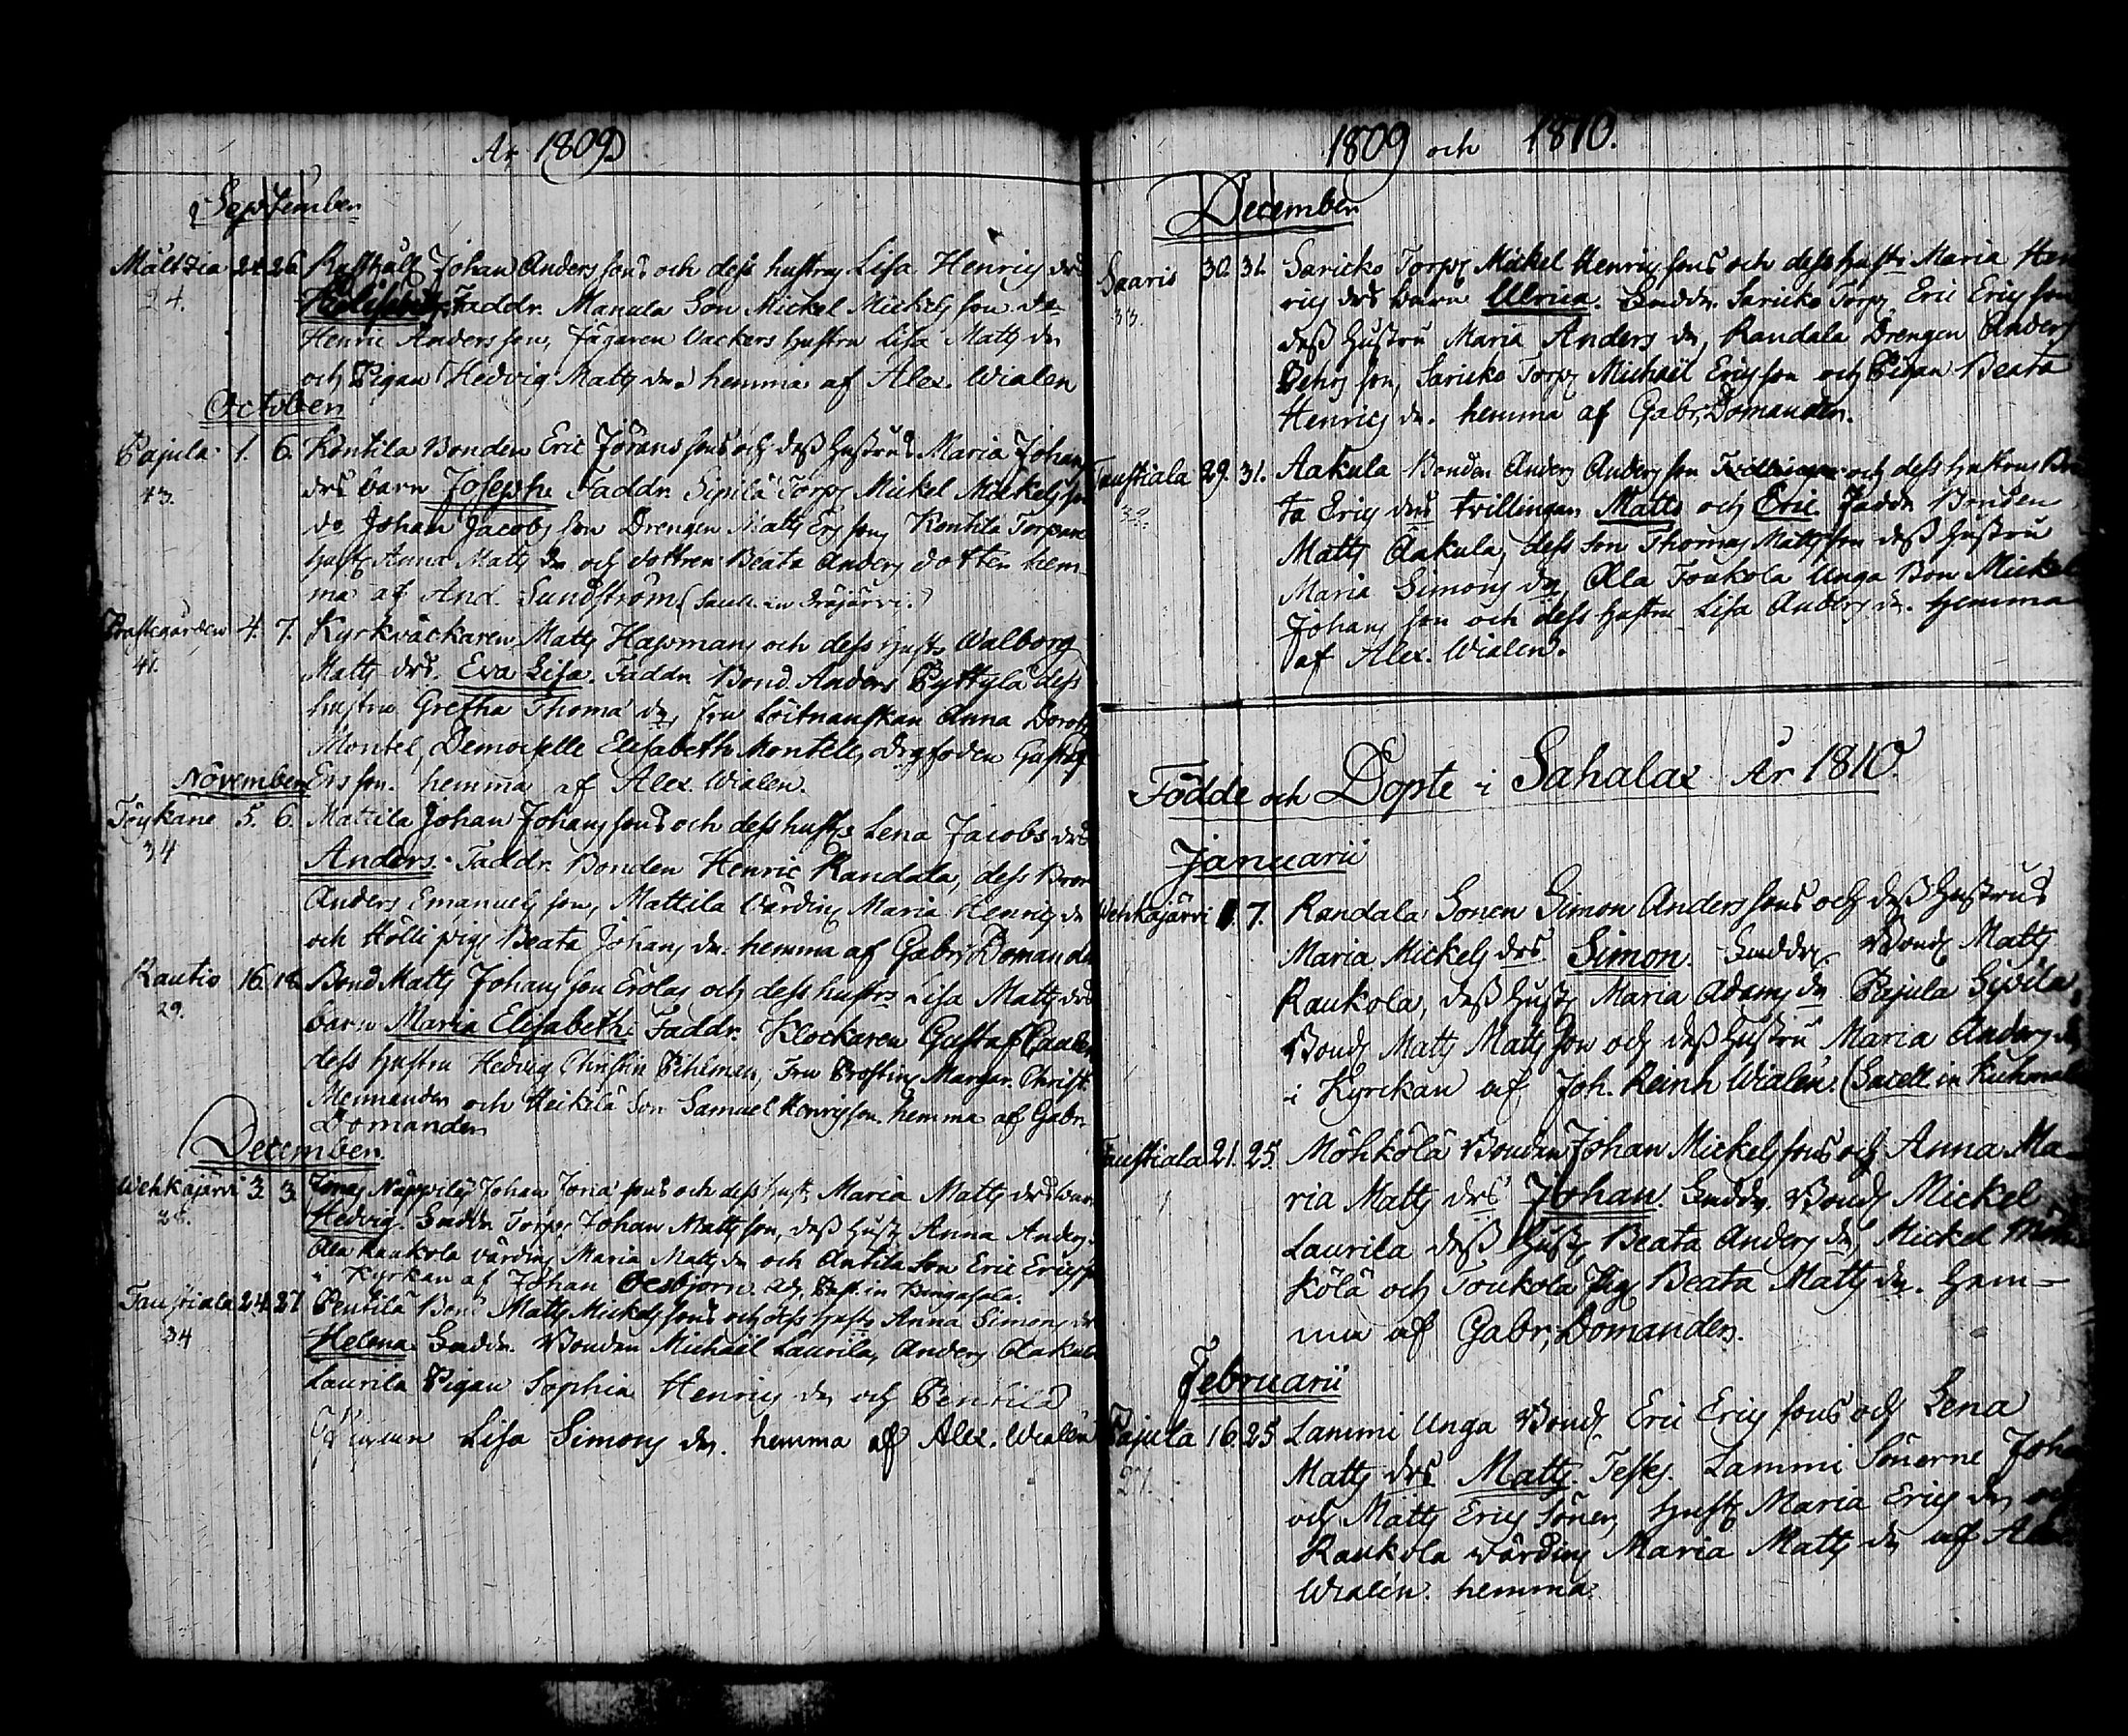 År 1809
September
Mältzia 24. 26. Rusthåll Johan Anders sons och dess hustrus Lisa Henrics drs
24. Faddr. Manala Son Mickel Mickels son do
Henric Andersson, Jägaren Vackers hustru Lisa Matts dr
och Pigan Hedvig Matts dr. hemma af Alex. Wialen
October
Pajula 1. 6. Kontila Bonden Eric Jörans sons och dess hustrus Maria Johans
43. drs barn Joseph. Faddr. Sipilä Torp. Mickel Mickels son
do Johan Jacobs son Drengen Matts Ers son, Kontila Torpare
hust. Anna Matts dr och dottren Beata Anders dotter hem-
ma af And. Sundström (Sacell. in
Prästegården 4. 7. Kyrkväckaren Matts Hassmans och dess hust. Walborg
41. Matts drs. Eva Lisa. Faddr. Bond. Anders Pyttylä dess
hustru Gretha Thomæ dr, Fru Löitnanskan Anna Doroth.
Montel, Demoiselle Elisabeth Montell, Gustaf
Ersson. hemma af Alex. Wialen.
November
Töykäne 5. 6. Mattila Johan Johans sons och dess hust. Lena Jacobs drs
34 Anders. Faddr. Bonden Henric Randala, dess Bror
Anders Emanuels son, Mattila Värdin. Maria Henrics dr
och Hölli pig. Beata Johans dr. hemma af Gabr. Domander
Rautio 16. 18. Bond Matts Johans son Erolas och dess hustrs Lisa Matts drs
29. barn Maria Elisabeth. Faddr. Klockaren Gustaf
dess hustru Hedvig Christin Pihlman, Fru Prostin. Margar. Christ.
Mennander och Heikilä Son Samuel Henrics son. hemma af Gabr.
Domander
December
Wehkajärvi 3. 3. Johan sons och dess hust. Maria Matts drs barn
28. Hedvig. Faddr. Torp. Johan Matts son, dess hust. Anna Anders
Ala Raukola värdin. Maria Matts dr och Antila Son Eric Erics son
i Kyrkan af Johan in Kangasala.
Taustiala 24. 27. Pentilä Bond Matts Mickels sons och dess hust. Anna Simons dr
34 Helena. Faddr. Bonden Michaël Laurila, Anders Aakula
Laurila Pigan Sophia Henrics dr och Pentilä
Pigan Lisa Simons dr. hemma af Alex. Wialen
1809 och 1810.
December
Saaris 30. 31. Saricko Torp. Mickel Henrics sons och dess hust. Maria Hen
33. rics drs barn Ulrica. Faddr. Saricko Torp. Eric Erics son
dess hustru Maria Anders dr, Randala Drengen Anders
son, Saricko Torp. Michaël Erics son och Pigan Beata
Henrics dr. hemma af Gabr. Domander.
Taustiala 29. 31. Aakula Bonden Anders Anders son och dess hustrus Bea
32. ta Erics drs tvillingar Matts och Eric Faddr. Bonden
Matts Aakula, dess son Thomas Mattsson dess hustru
Maria Simons dr, Ala Toukola Unga Bon. Mickel
Johans son och dess hustru Lisa Anders dr. hemma
af Alex. Wialen.
Födde och Döpte i Sahalax År 1810.
Januarii
Wehkajärvi 1. 7. Randala Sonen Simon Anders sons och dess hustrus
Maria Mickels drs Simon. Faddr. Bond. Matts
Raukola, dess hust. Maria Adams dr Pajula Sipilä
Bond. Matts Matts son och dess hustru Maria Anders dr
i Kyrckan af Joh. Reinh Wialen. (Sacell in Kuhmala
Taustiala 21. 25. Möhkölä Bonden Johan Mickels sons och Anna Ma-
ria Matts drs Johan. Faddr. Bond. Mickel
Laurila dess hust. Beata Anders dr, Mickel Möh
kölä och Toukola Pig. Beata Matts dr. hem-
ma af Gabr. Domander.
Februarii
Pajula 16. 25. Lammi Unga Bond. Eric Erics sons och Lena
27. Matts drs Matts. Test. Lammi Sönerne Joha
och Matts Erics Söner, hust. Maria Erics dr och
Raukola värdin. Maria Matts dr af Alex.
Wialen. hemma.